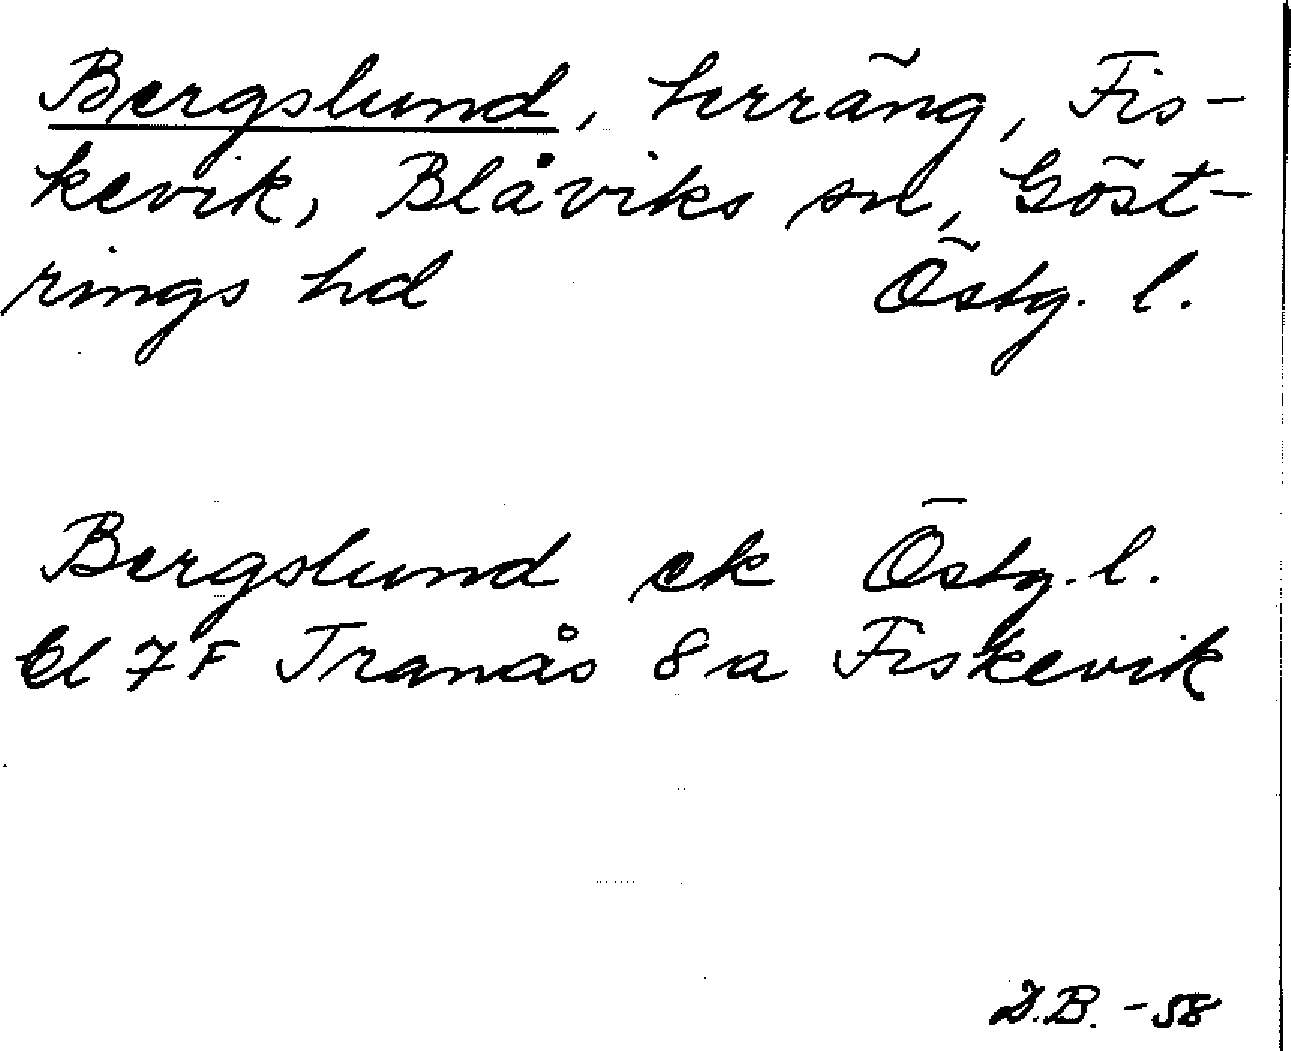 Bergslund, terräng, Fis-
kevik, Blåviks sn, Göst-
rings hd Östg. l.
Bergslund ek Östg. l.
bl 7F Tranås 8a Fiskevik
D.B. - 58